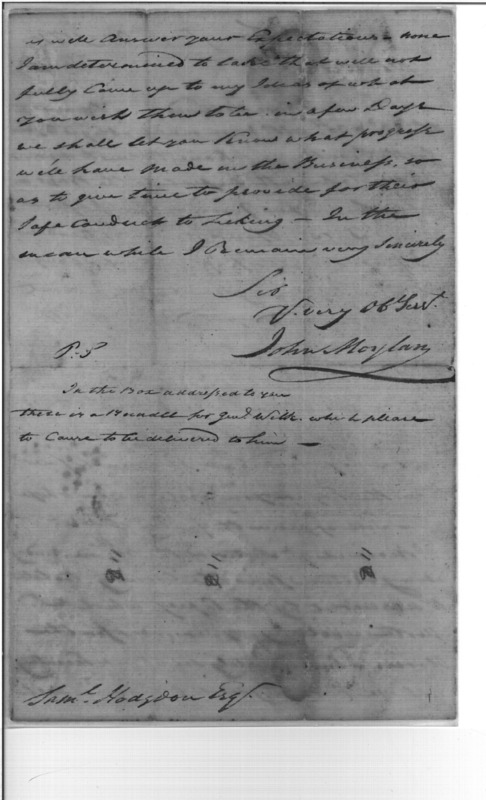 as will Answer your Expectations - none
I am determined to take that will not
fully Come up to my Ideas of what
you wish them to be. in a few Days
we shall let you Know what progress
we'll have made in the Business, so
as to give time to provide for their
safe Conduct to - In the
mean while I Remain very Sincerely
Sir
Yr. very Ob Servt.
John Moylan
P.S
In the Box addressed to you
there is a Bundle for Genl. Wilk. which please
to Cause to be delivered to him -
Saml. Hodgdon Esqr.